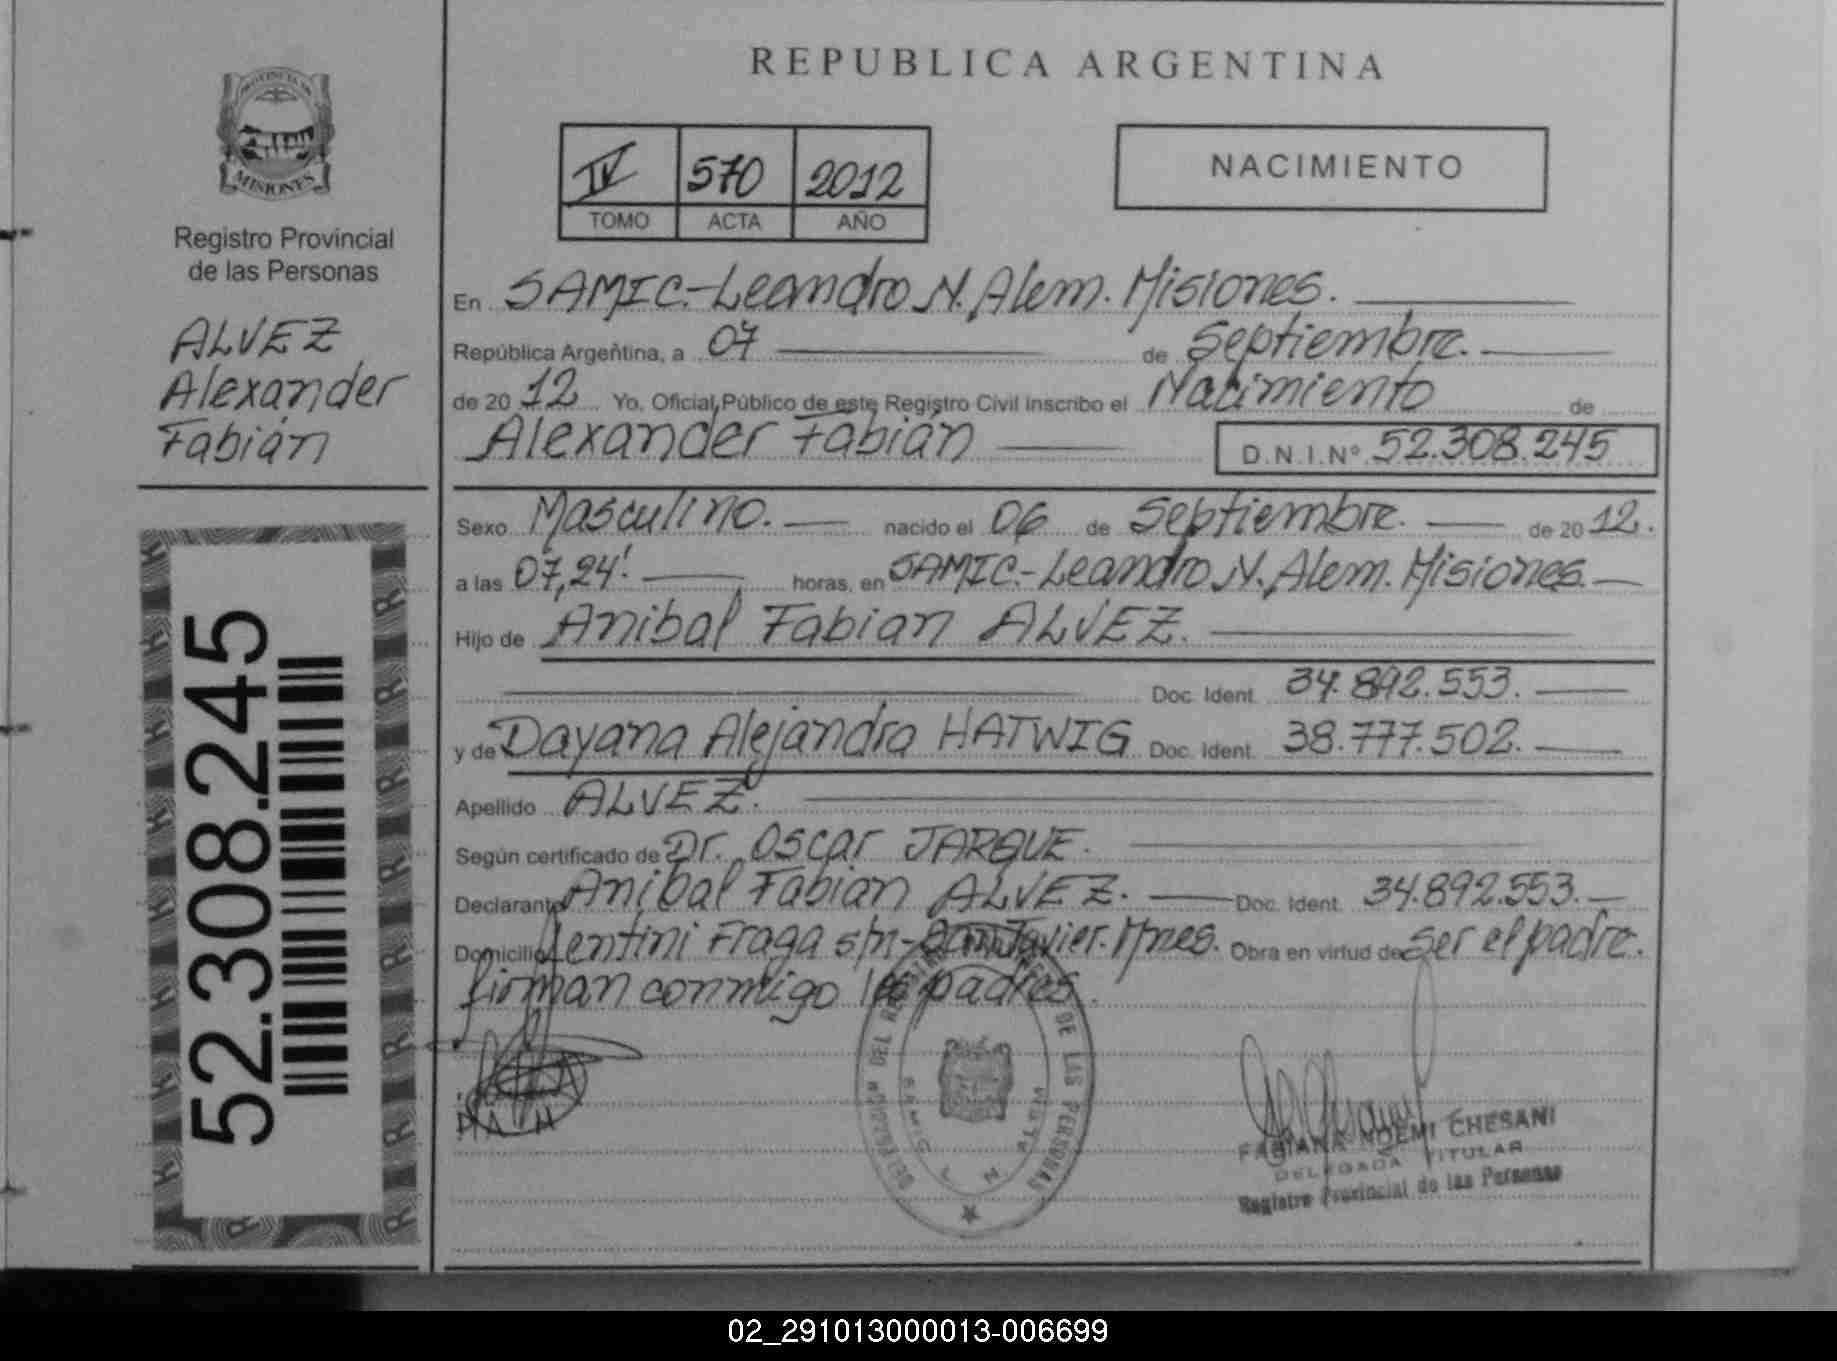 REPUBLICA ARGENTINA
PROVINCIA DE
MISIONES
Registro Provincial
de las Personas
ALVEZ
Alexander
Fabián
52.308.245
IV 570 2012
TOMO ACTA AÑO
NACIMIENTO
En SAMIC.-Leandro N. Alem. Misiones.
República Argentina, a 07 de Septiembre.
de 20 12 Yo, Oficial Público de este Registro Civil inscribo el Nacimiento de
Alexander Fabián D.N.I.Nº 52.308.245
Sexo Masculino. nacido el 06 de Septiembre. de 20 12.
a las 07,24' horas, en SAMIC.-Leandro N. Alem. Misiones.
Hijo de Anibal Fabian ALVEZ.
Doc. Ident. 34.892.553.
y de Dayana Alejandra HATWIG Doc. Ident. 38.777.502.
Apellido ALVEZ.
Según certificado de Dr. Oscar JARQUE.
Declarante Anibal Fabian ALVEZ. Doc. Ident. 34.892.553.
Domicilio Lentini Fraga s/n- San Javier. Mnes. Obra en virtud de Ser el padre.
firman conmigo los padres.
DE LAS PERSONAS
FABIANA NOEMI CHESANI
DELEGADA TITULAR
Registro Provincial de las Personas
02_291013000013-006699